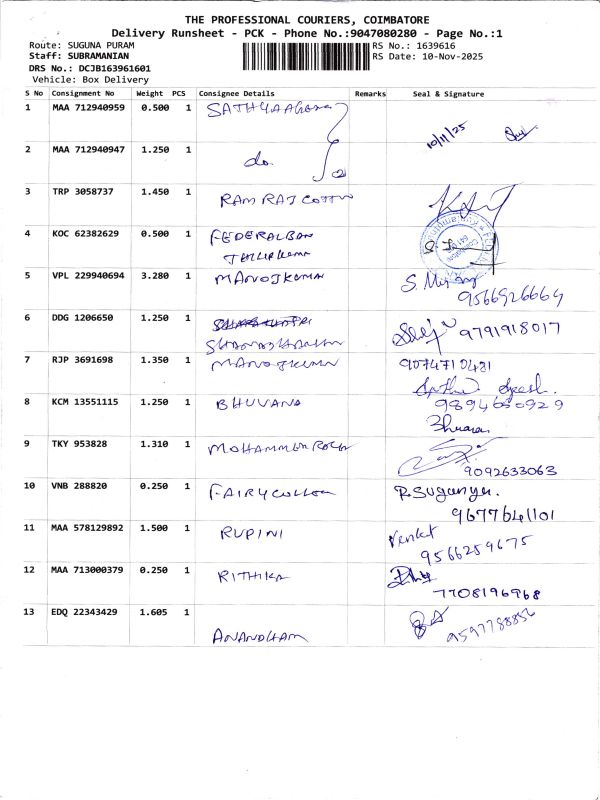 THE PROFESSIONAL COURIERS, COIMBATORE
Delivery Runsheet - PCK - Phone No.:9047080280 - Page No.:1
Route: SUGUNA PURAM
RS No.: 1639616
Staff: SUBRAMANIAN
RS Date: 10-Nov-2025
DRS No.: DCJB163961601
Vehicle: Box Delivery
S No Consignment No Weight PCS Consignee Details Remarks Seal & Signature
1 MAA 712940959 0.500 1
10/11/25
2 MAA 712940947 1.250 1 do.
3 TRP 3058737 1.450 1 RAM RAJ COTTON
4 KOC 62382629 0.500 1 FEDERAL BAN
5 VPL 229940694 3.280 1 MANOJKUMAR
9566926664
6 DDG 1206650 1.250 1 9791918017
7 RJP 3691698 1.350 1 MANOJKUMAR 9074710421
8 KCM 13551115 1.250 1 BHUVANA
9 TKY 953828 1.310 1
9092633063
10 VNB 288820 0.250 1 R.Suganya.
9677641101
11 MAA 578129892 1.500 1 RUPINI Venket
9566259675
12 MAA 713000379 0.250 1 RITHIKA
7708196968
13 EDQ 22343429 1.605 1